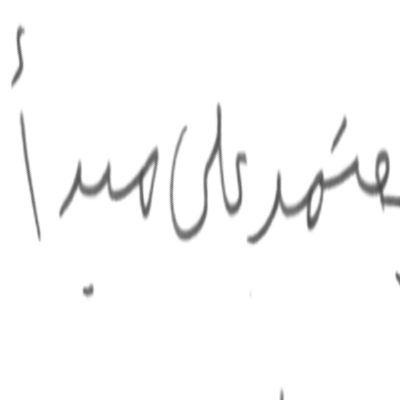 يعتمد على مبدأ